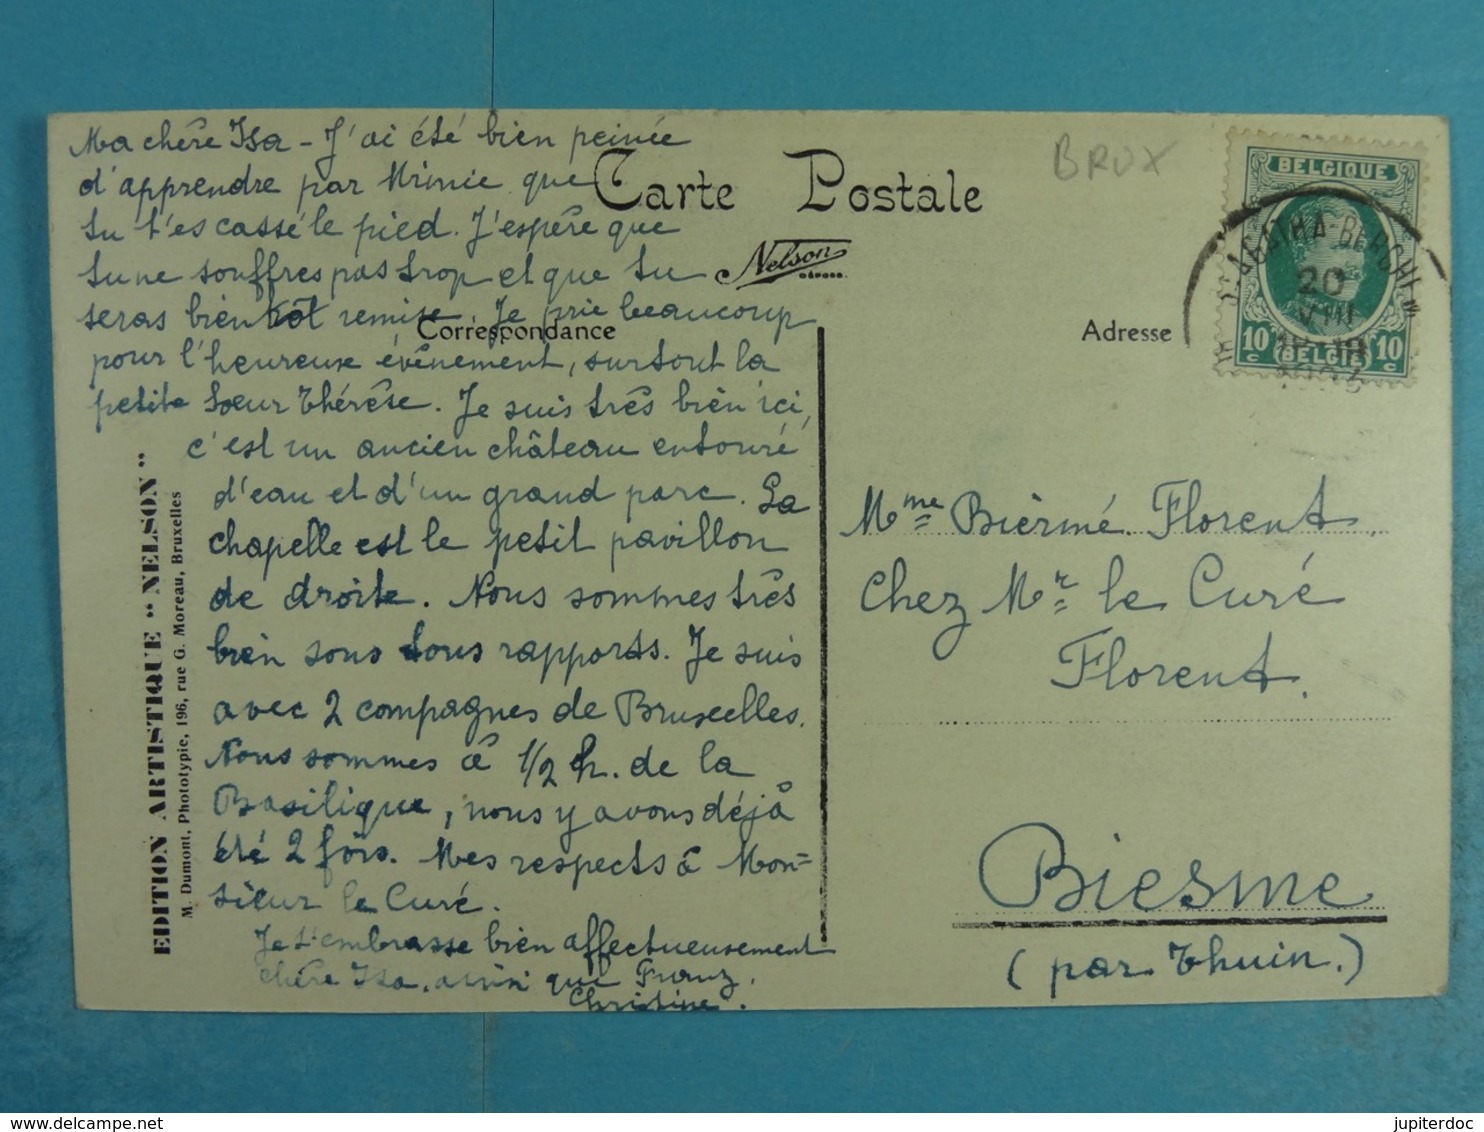 Ma chère Isa - J'ai été bien peinée
d'apprendre par Mimie que
tu t'es cassé le pied. J'espère que
tu ne souffres pas trop et que tu
seras bientôt remise. Je prie beaucoup
pour l'heureux évènement, surtout la
petite Soeur Thérèse. Je suis très bien ici,
c'est un ancien château entouré
d'eau et d'un grand parc. La
chapelle est le petit pavillon
de droite. Nous sommes très
bien sous tous rapports. Je suis
avec 2 compagnes de Bruxelles.
Nous sommes à 1/2 h. de la
Basilique, nous y avons déjà
été 2 fois. Mes respects à Mon=
sieur le Curé.
Je t'embrasse bien affectueusement
chère Isa, ainsi que Franz.
Christine.
Carte Postale
Nelson
DÉPOSÉ.
Correspondance
Adresse
EDITION ARTISTIQUE "NELSON"
M. Dumont, Phototypie, 196, rue G. Moreau, Bruxelles
BRUX
BELGIQUE
10 c BELGIË 10 c
AGATHA-BERCHEM
20
VIII
Mme Biermé. Florent
Chez Mr le Curé
Florent.
Biesme
(par Thuin.)
jupiterdoc
www.delcampe.net